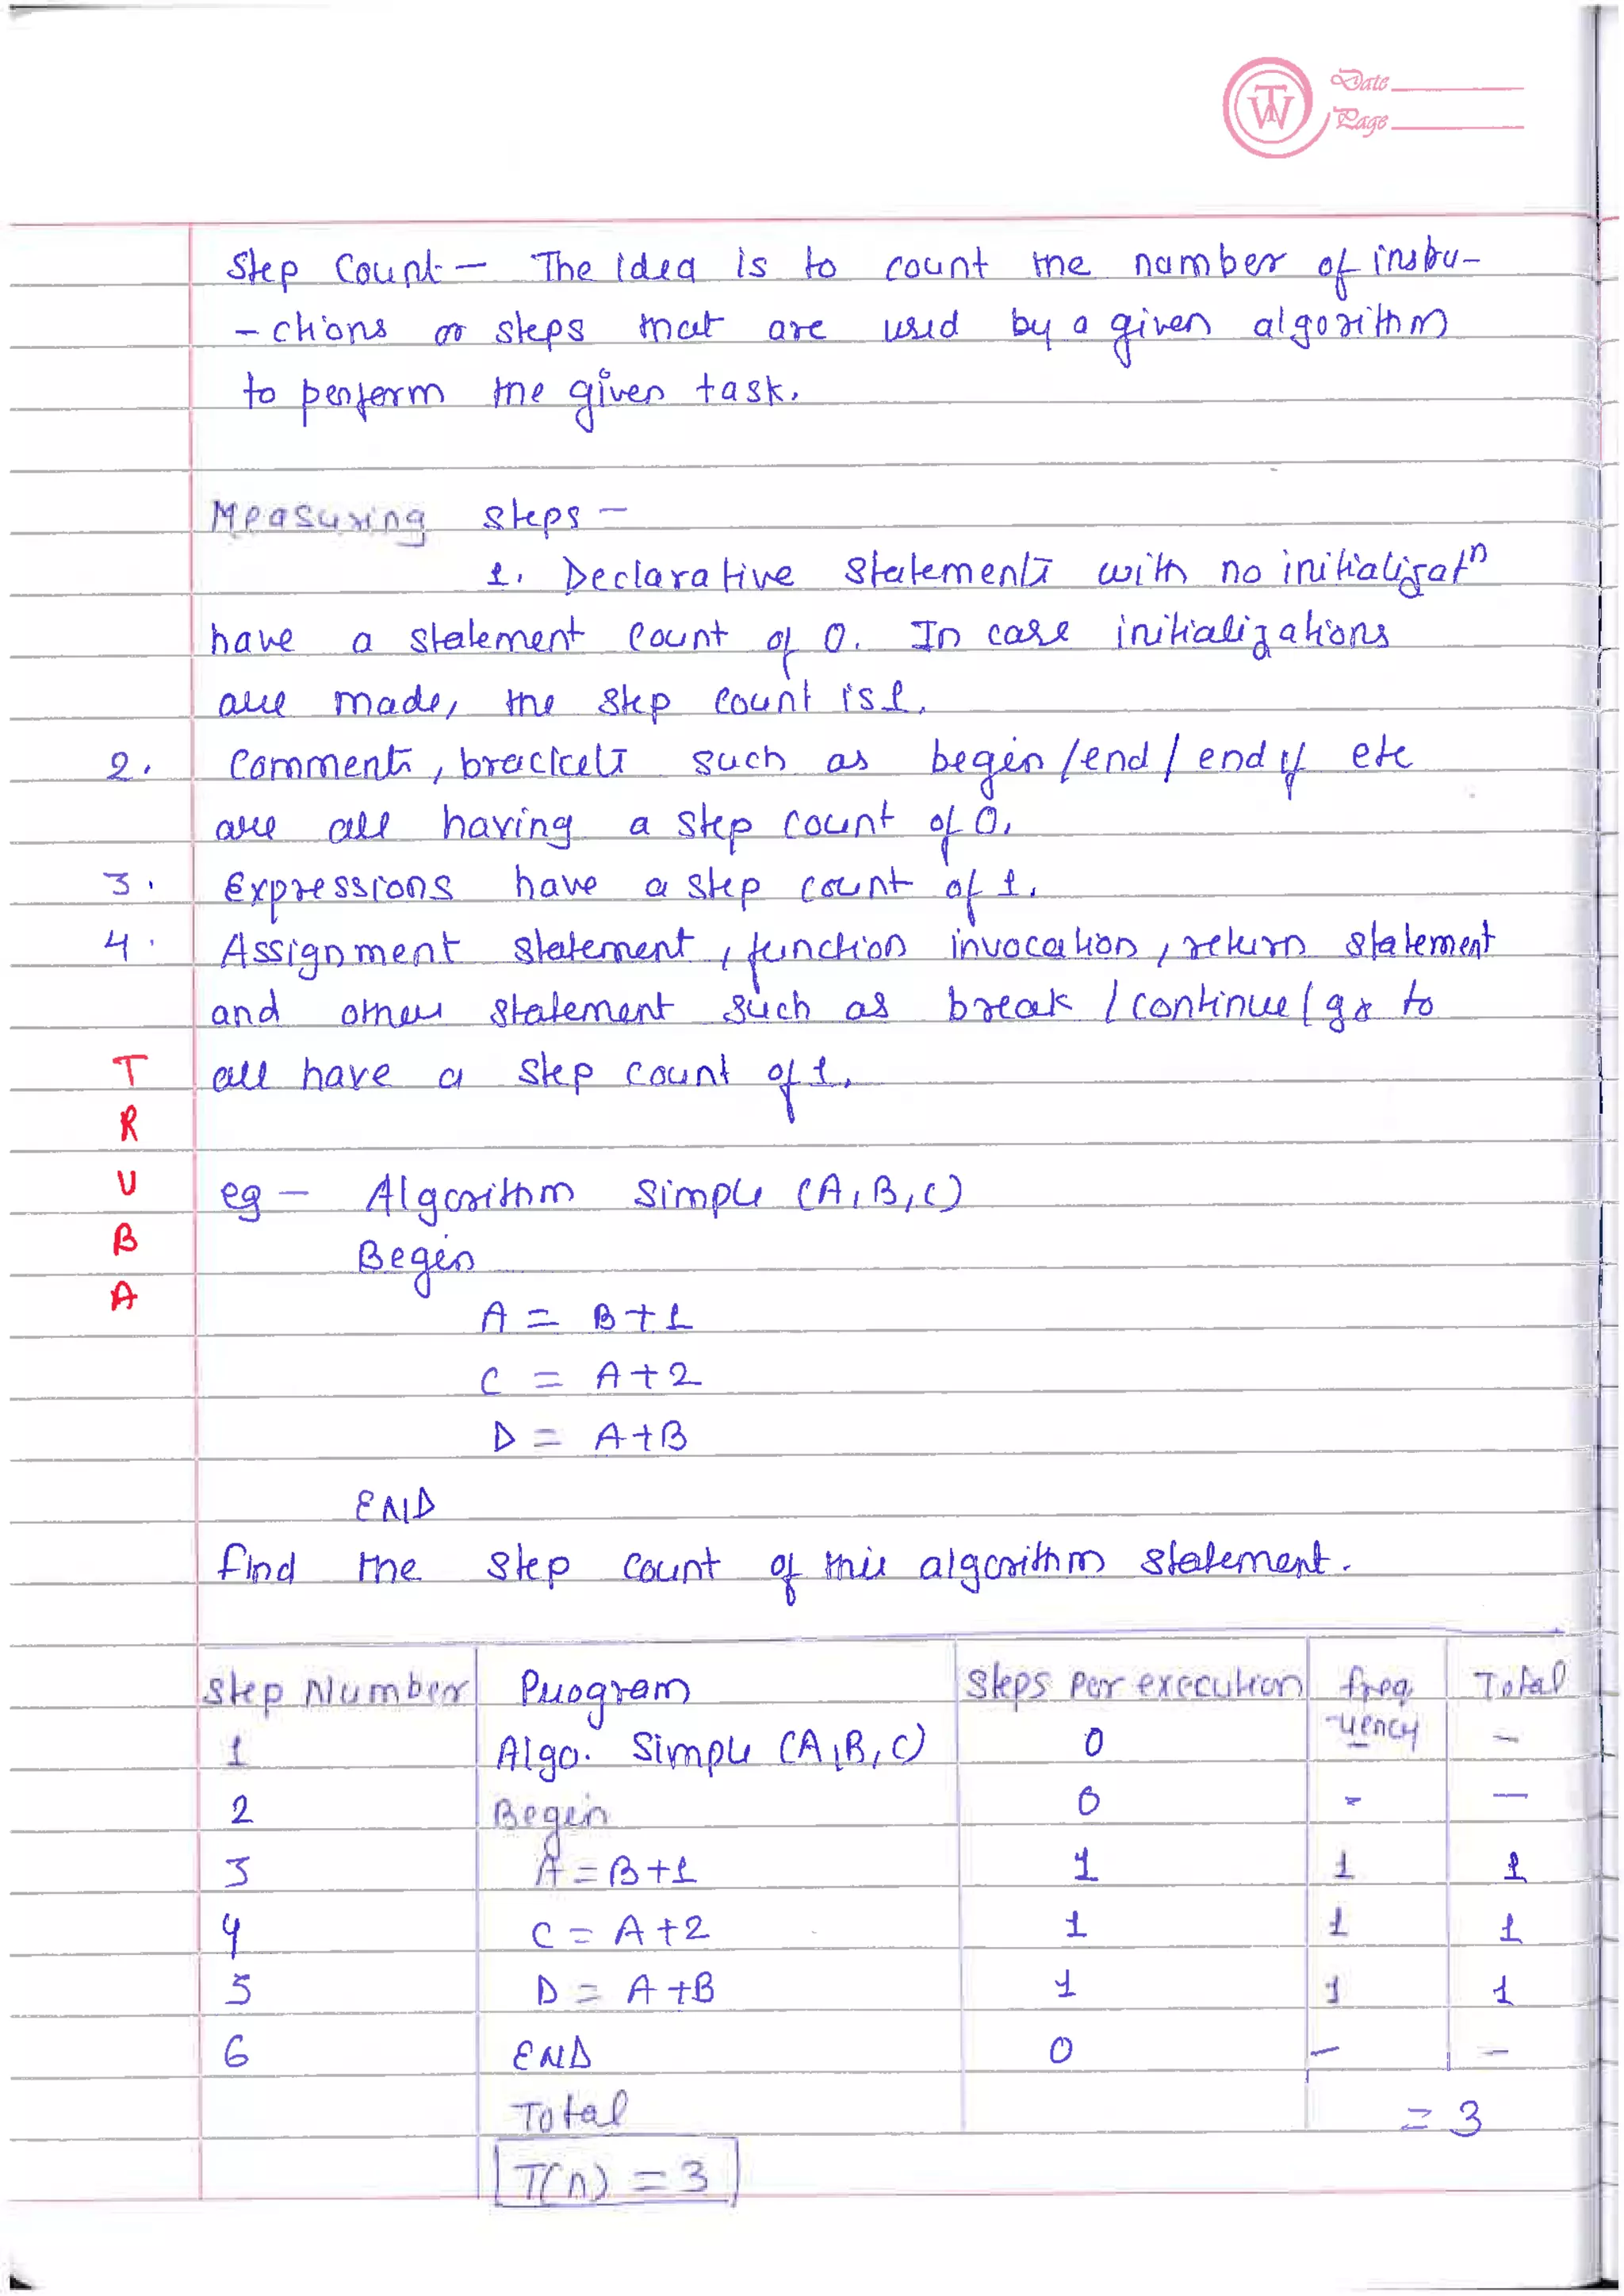 TW Date
Page
Step Count — The idea is to count the number of instru-
- ctions or steps that are used by a given algorithm
to perform the given task.
Measuring steps —
1. Declarative statements with no initializatn
have a statement count of 0. In case initializations
are made, the step count is 1.
2. Comments, brackets such as begin / end / end if etc
are all having a step count of 0.
3. Expressions have a step count of 1.
4. Assignment statement, function invocation, return statement
and other statement such as break / continue / go to
all have a step count of 1.
T
R
U
B
A
eg — Algorithm Simple (A, B, C)
Begin
A = B+1
C = A+2
D = A+B
END
find the step count of this algorithm statement.
Step Number Program Steps per execution freq. Total
-uency
1 Algo. Simple (A, B, C) 0 –
2 Begin 0 - —
3 A = B+1 1 1 1
4 C = A+2 1 1 1
5 D = A+B 1 1 1
6 END 0 — —
Total = 3
T(n) = 3